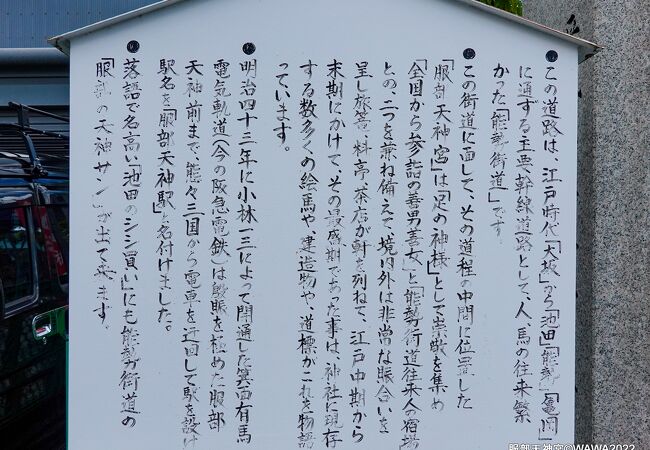 この道路は、江戸時代「大坂」から「池田」「能勢」「亀岡」
に通ずる主要幹線道路として、人、馬の往来繁
かった「能勢街道」です。
この街道に面して、その道程の中間に位置した
「服部天神宮」は「足の神様」として崇敬を集め
「全国から参詣の善男善女」と「能勢街道往来人の宿場」
との、二つを兼ね備えて、境内外は非常な賑合いを
呈し旅篭、料亭、茶店が軒を列ねて、江戸中期から
末期にかけて、その最盛期であった事は、神社に現存
する数多くの絵馬や、建造物や、道標がこれを物語
っています。
明治四十三年に小林一三によって開通した箕面有馬
電気軌道(今の阪急電鉄)は殷賑を極めた服部
天神前まで、態々三国から電車を迂回して駅を設け
駅名を「服部天神駅」と名付けました。
落語で名高い「池田のシシ買い」にも能勢街道の
「服部の天神サン」が出て来ます。
服部天神宮©WAWA2022